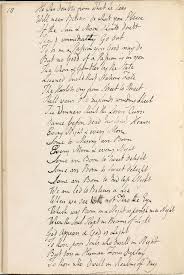 He who doubts from what he sees
Will neer Believe do what you Please
If the Sun & Moon should doubt
Theyd immediately Go out
To be in a Passion you Good may do
But no Good if a Passion is in you
The Whore & Gambler by the State
Licencd build that Nations Fate
The Harlots cry from Street to Street
Shall weave Old Englands winding Sheet
The Winners Shout the Losers Curse
Dance before dead Englands Hearse
Every Night & every Morn
Some to Misery are Born
Every Morn & every Night
Some are Born to sweet delight
Some are Born to sweet delight
Some are Born to Endless Night
We are led to Believe a Lie
When we see not Thro the Eye
Which was Born in a Night to perish in a Night
When the Soul Slept in Beams of Light
God Appears & God is Light
To those poor Souls who dwell in Night
But does a Human Form Display
To those who Dwell in Realms of day